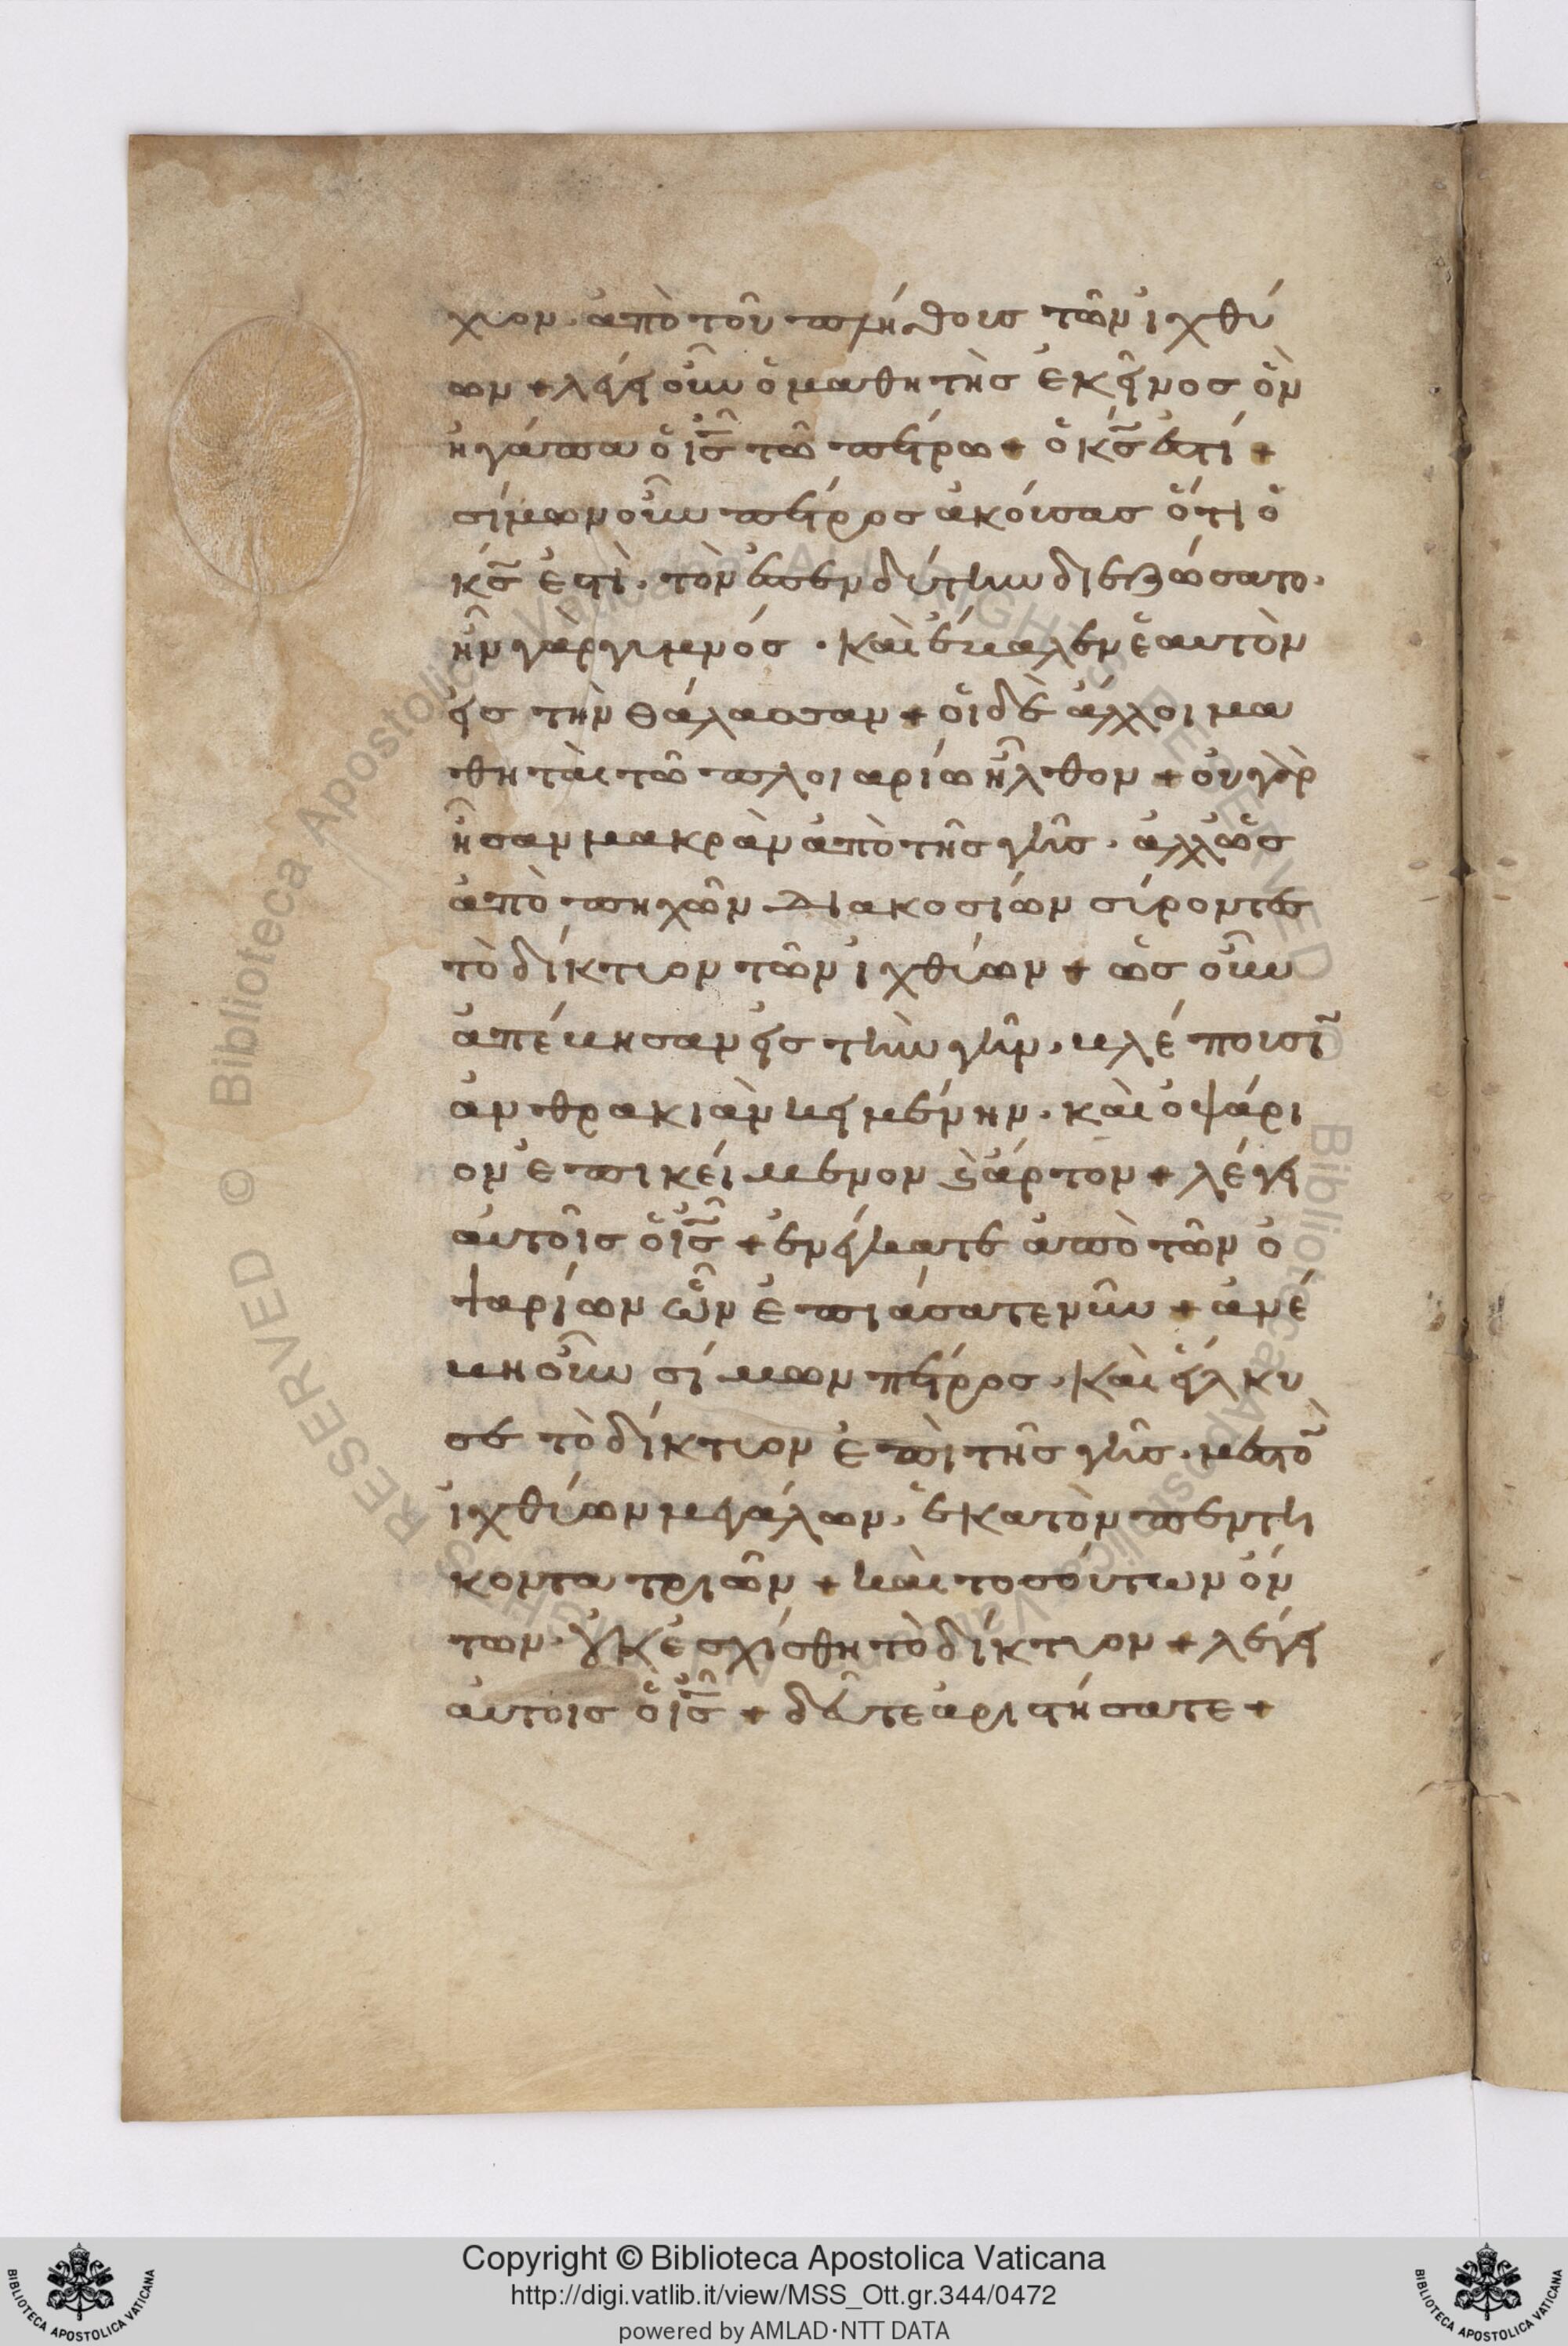 χυον· ἀπὸ τοῦ πλήθους τῶν ἰχθύ
ων + λέγει οὖν ὁ μαθητὴς ἐκεῖνος ὃν
ἠγάπα ὁ ἰς̅ τῶ πέτρω + ὁ κς̅ ἐστί +
σίμων οὖν πέτρος ἀκούσας ὅτι ὁ
κς̅ ἐστὶ· τὸν ἐπενδύτην διεζώσατο·
ἦν γὰρ γυμνός · καὶ ἔβαλεν ἑαυτὸν
εἰς τὴν θάλασσαν + οἱ δὲ ἄλλοι μα
θηταὶ τῶ πλοιαρίω ἦλθον + οὐ γὰρ
ἦσαν μακρὰν ἀπὸ τῆς γῆς · ἀλλ' ὡς
ἀπὸ πηχῶν διακοσίων σύροντες
τὸ δίκτυον τῶν ἰχθύων + ὡς οὖν
ἀπέβησαν εἰς τὴν γῆν · βλέπουσι̅
ἀνθρακιὰν κειμένην · καὶ ὀψάρι
ον ἐπικείμενον ϗ ἄρτον + λέγει
αὐτοῖς ὁ ἰς̅ + ἐνέγκατε ἀπὸ τῶν ὀ
ψαρίων ὧν ἐπιάσατε νῦν + ἀνέ
βη οὖν σίμων πέτρος · καὶ εἵλκυ
σε τὸ δίκτυον ἐπὶ τῆς γῆς · μεστὸ̅
ἰχθύων μεγάλων · ἑκατὸν πεντη
κοντα τριῶν + καὶ τοσούτων ὄν
των · οὐκ ἐσχίσθη τὸ δίκτυον + λέγει
αὐτοις ὁ ἰς̅ + δεῦτε ἀριστήσατε +
Copyright © Biblioteca Apostolica Vaticana
http://digi.vatlib.it/view/MSS_Ott.gr.344/0472
powered by AMLAD·NTT DATA